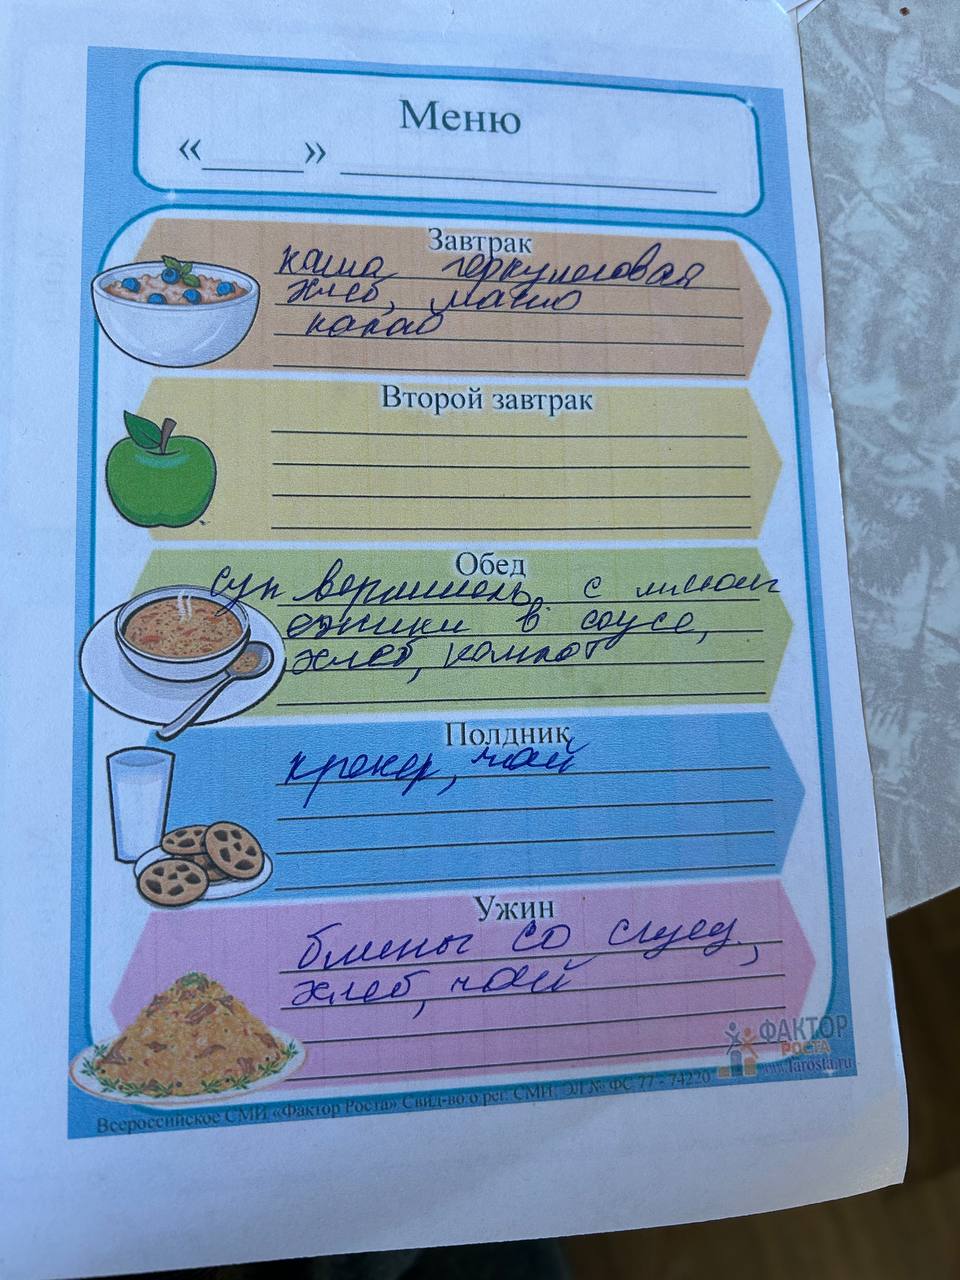 Меню
«____» ____________________
Завтрак
каша геркулесовая
хлеб, масло
какао
Второй завтрак
Обед
суп вермишель с мясом
ежики в соусе,
хлеб, компот
Полдник
крекер, чай
Ужин
блины со сгущ,
хлеб, чай
ФАКТОР
РОСТА
www.farosta.ru
Всероссийское СМИ «Фактор Роста» Свид-во о рег. СМИ: ЭЛ № ФС 77 - 74220